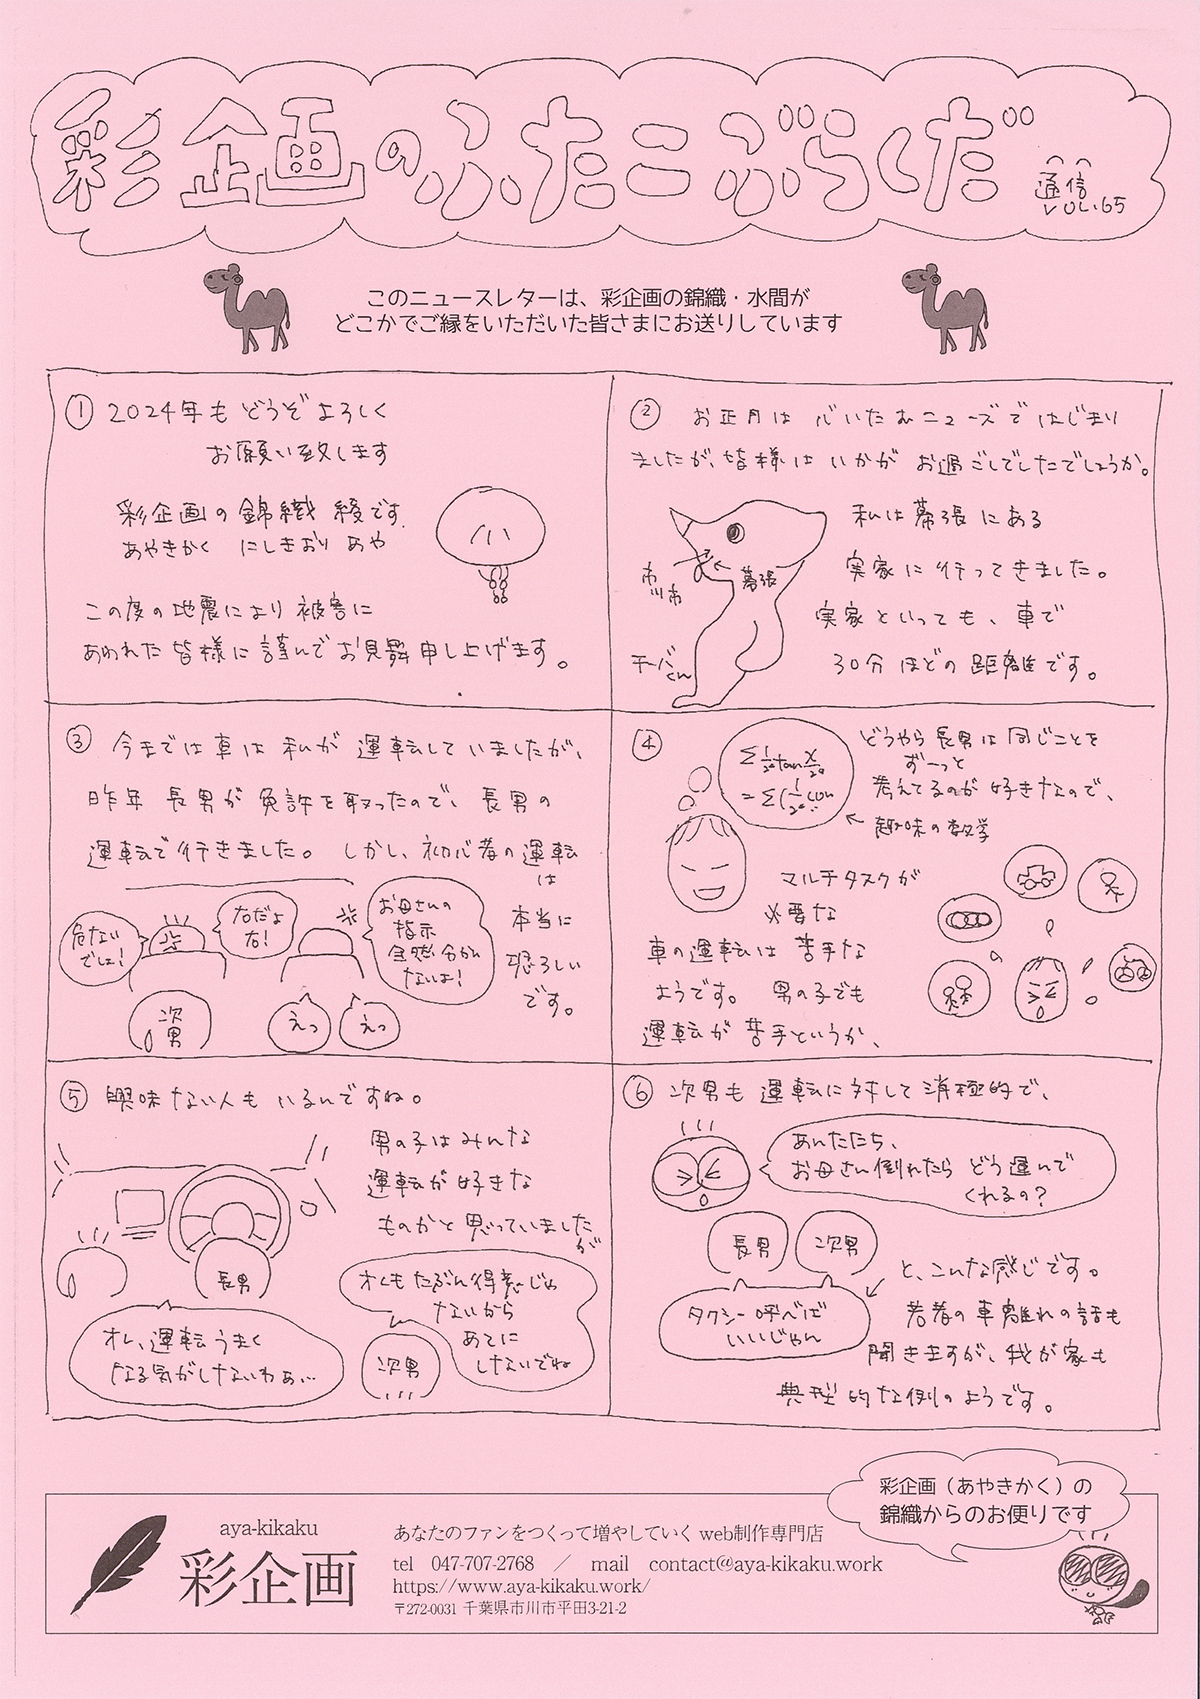 彩企画のふたこぶらくだ
通信
VOL.65
このニュースレターは、彩企画の錦織・水間が
どこかでご縁をいただいた皆さまにお送りしています
① 2024年もどうぞよろしく
お願い致します
彩企画の錦織 綾です。
あやきかく にしきおり あや
この度の地震により被害に
あわれた皆様に謹んでお見舞申し上げます。
② お正月は心いたむニュースではじまり
ましたが、皆様はいかがお過ごしでしたでしょうか。
私は幕張にある
実家に行ってきました。
実家といっても、車で
30分ほどの距離です。
市川市
幕張
チーバくん
③ 今までは車は私が運転していましたが、
昨年長男が免許を取ったので、長男の
運転で行きました。しかし、初心者の運転
は
本当に
恐ろしい
です。
危ない
でしょ!
右だよ
右!
お母さんの
指示
全然分かん
ないよ!
次男
えっ
えっ
④ どうやら長男は同じことを
ずーっと
考えてるのが好きなので、
趣味の数学
マルチタスクが
必要な
車の運転は苦手な
ようです。男の子でも
運転が苦手というか、
⑤ 興味ない人もいるんですね。
男の子はみんな
運転が好きな
ものかと思っていました
が
長男
オレ、運転うまく
なる気がしないわぁ…
オレもたぶん得意じゃ
ないから
あてに
しないでね
次男
⑥ 次男も運転に対して消極的で、
あんたたち、
お母さん倒れたらどう運んで
くれるの?
長男
次男
タクシー呼べば
いいじゃん
と、こんな感じです。
若者の車離れの話も
聞きますが、我が家も
典型的な例のようです。
彩企画(あやきかく)の
錦織からのお便りです
aya-kikaku
彩企画
あなたのファンをつくって増やしていく web制作専門店
tel 047-707-2768 / mail contact@aya-kikaku.work
https://www.aya-kikaku.work/
〒272-0031 千葉県市川市平田3-21-2